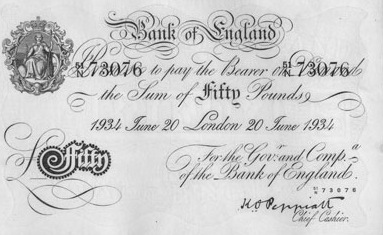 Bank of England
51/N 73076 Promise to pay the Bearer on Demand 51/N 73076
the Sum of Fifty Pounds
1934 June 20 London 20 June 1934
For the Gov.r and Comp.a
of the Bank of England.
£ Fifty
51/N 73076
K.O. Peppiatt
Chief Cashier.